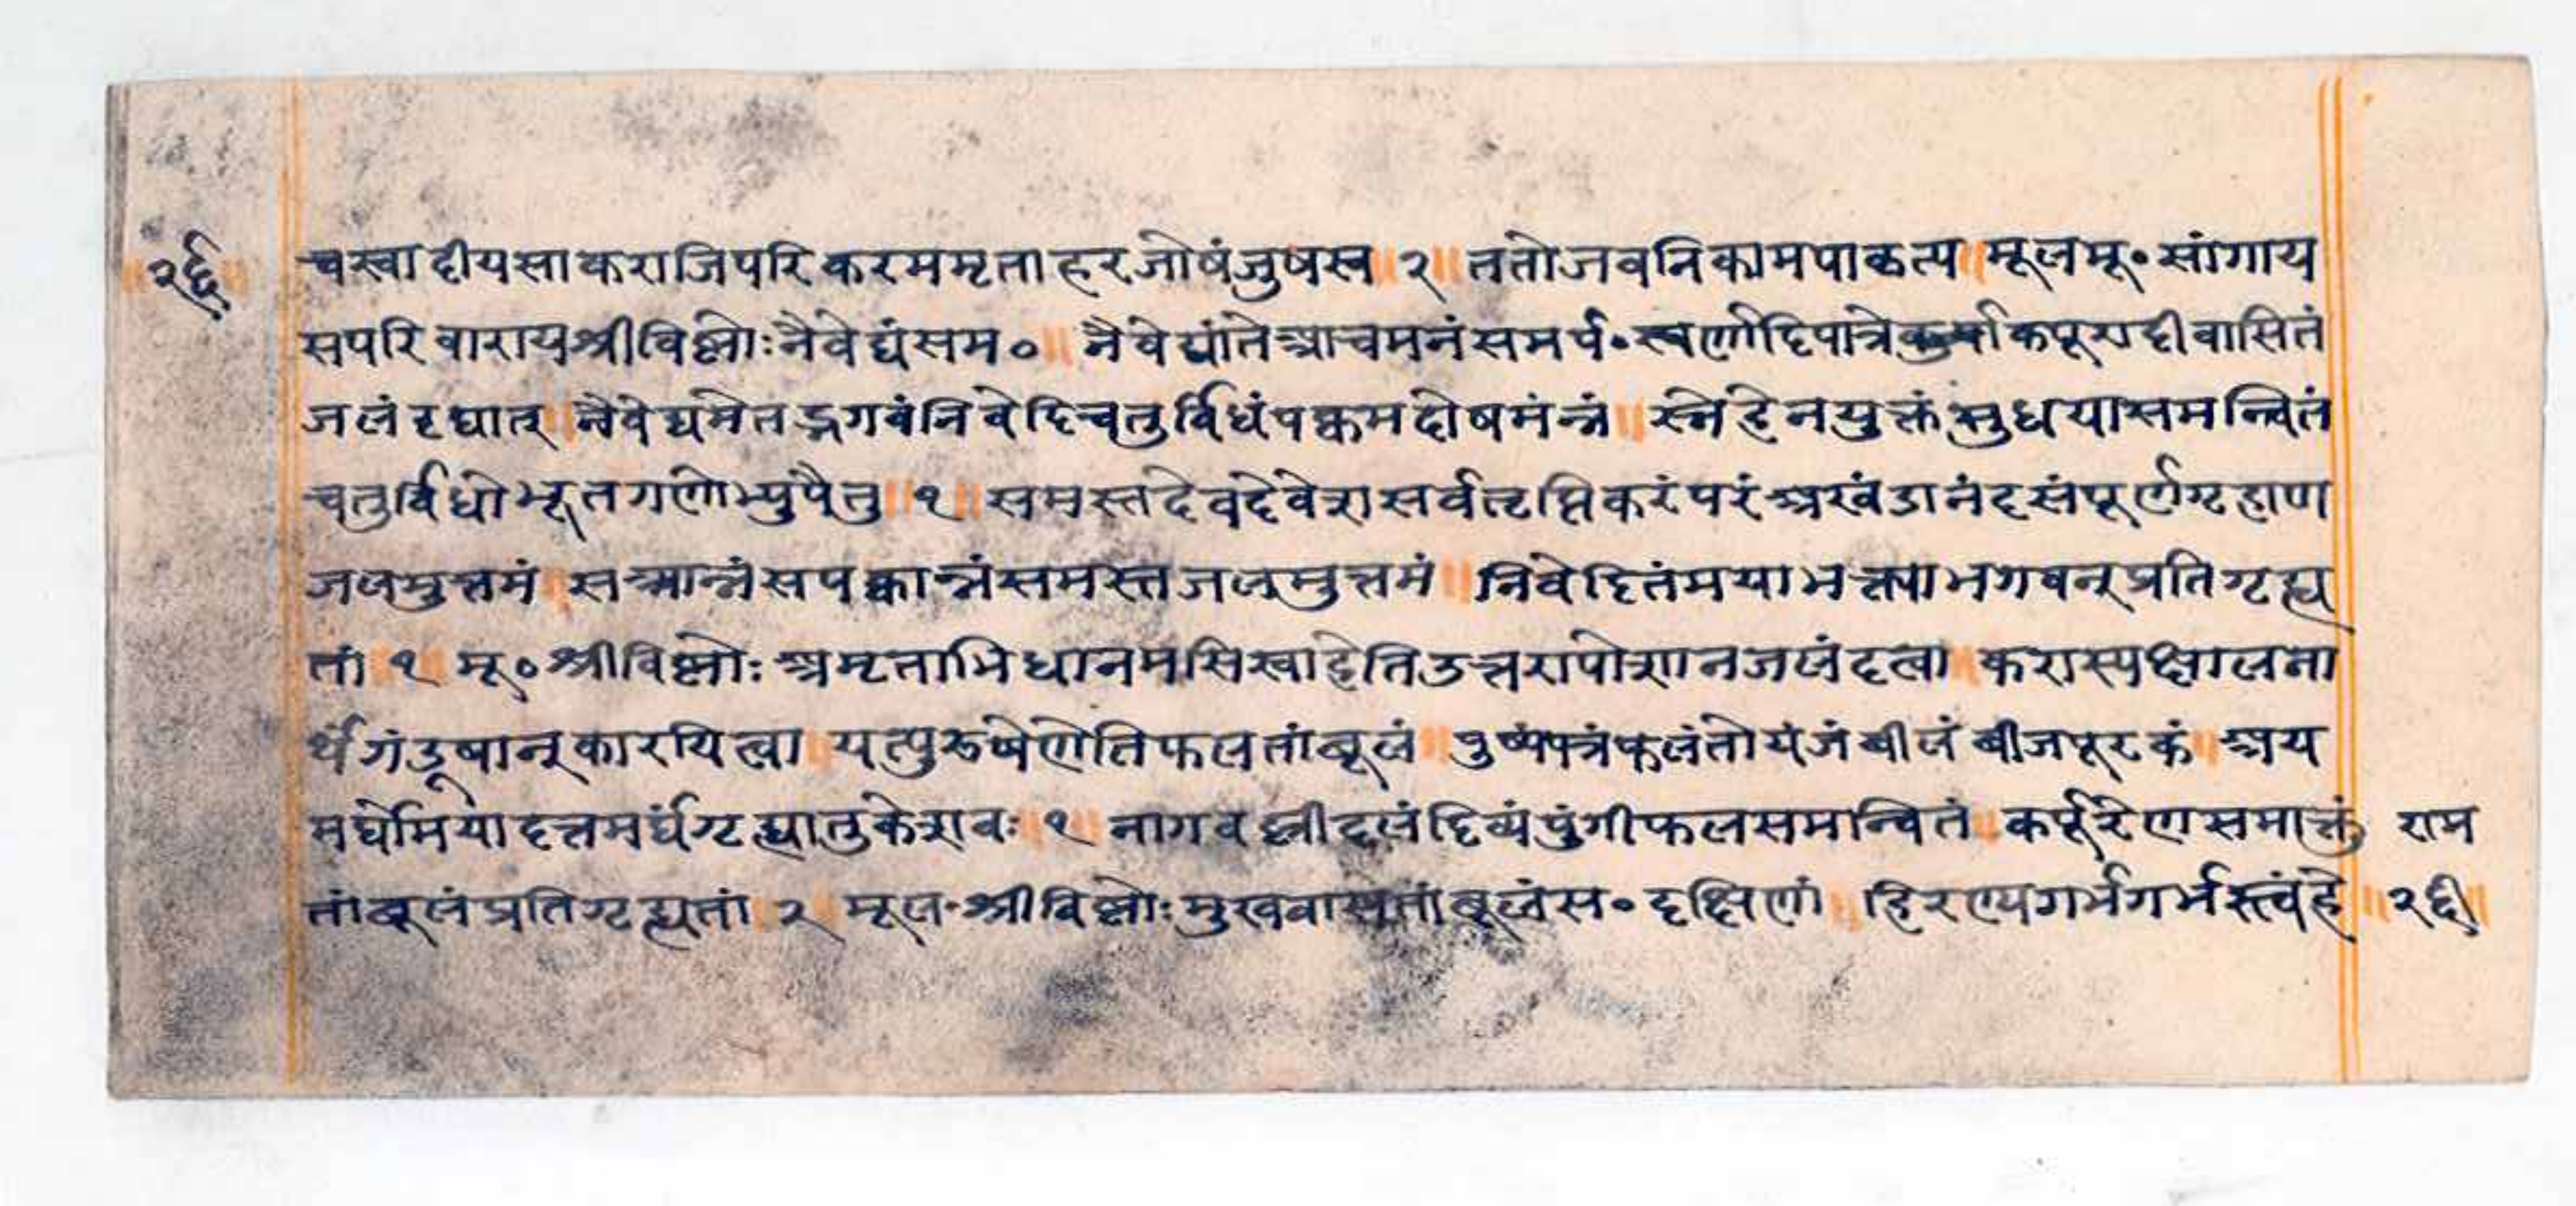 २६ चस्वादीयसाकराजिपरिकरममृताहरजोषंजुषस्व ॥ २ ॥ ततोजवनिकामपाकृत्य ॥ मूलमू॰ सांगाय
सपरिवारायश्रीविष्णोःनैवेद्यंसम० ॥ नैवेद्यांतेआचमनंसमर्प॰ स्वर्णादिपात्रे कपूरादीवासितं
जलंदद्यात् ॥ नैवेद्यमेतद्भगवंनिवेदिचतुर्विधंपक्वमदोषमंन्नं ॥ स्नेहेनयुक्तंसुधयासमन्वितं
चतुर्विधोभूतगणोभ्युपैतु ॥ १ ॥ समस्तदेवदेवेशसर्वतृप्तिकरंपरंअखंडानंदसंपूर्णगृहाण
जलमुत्तमं ॥ सआन्नंसपक्वान्नंसमस्तजलमुत्तमं ॥ निवेदितंमयाभक्त्याभगवन्प्रतिगृह्य
तां ॥ १ ॥ मू० श्रीविष्णोः अमृताभिधानमसिस्वाहेतिउत्तरापोशानजलंदत्वा ॥ करास्यक्षालना
र्थंगंडूषान्कारयित्वा ॥ यत्पुरुषेणेतिफलतांबूलं ॥ पुष्पंपत्रंफलंतोयंजंबीलंबीजपूरकं ॥ अय
मर्घोमयादत्तमर्घंगृह्यातुकेशवः ॥ १ ॥ नागवल्लीदलंदिव्यंपुंगीफलसमन्वितं ॥ कर्पूरेणसमाक्तं राम
तांबूलंप्रतिगृह्यतां ॥ २ ॥ मूल॰ श्रीविष्णोः मुखवासतांबूलंस॰ दक्षिणां ॥ हिरण्यगर्भगर्भस्त्वंहे ॥ २६ ॥